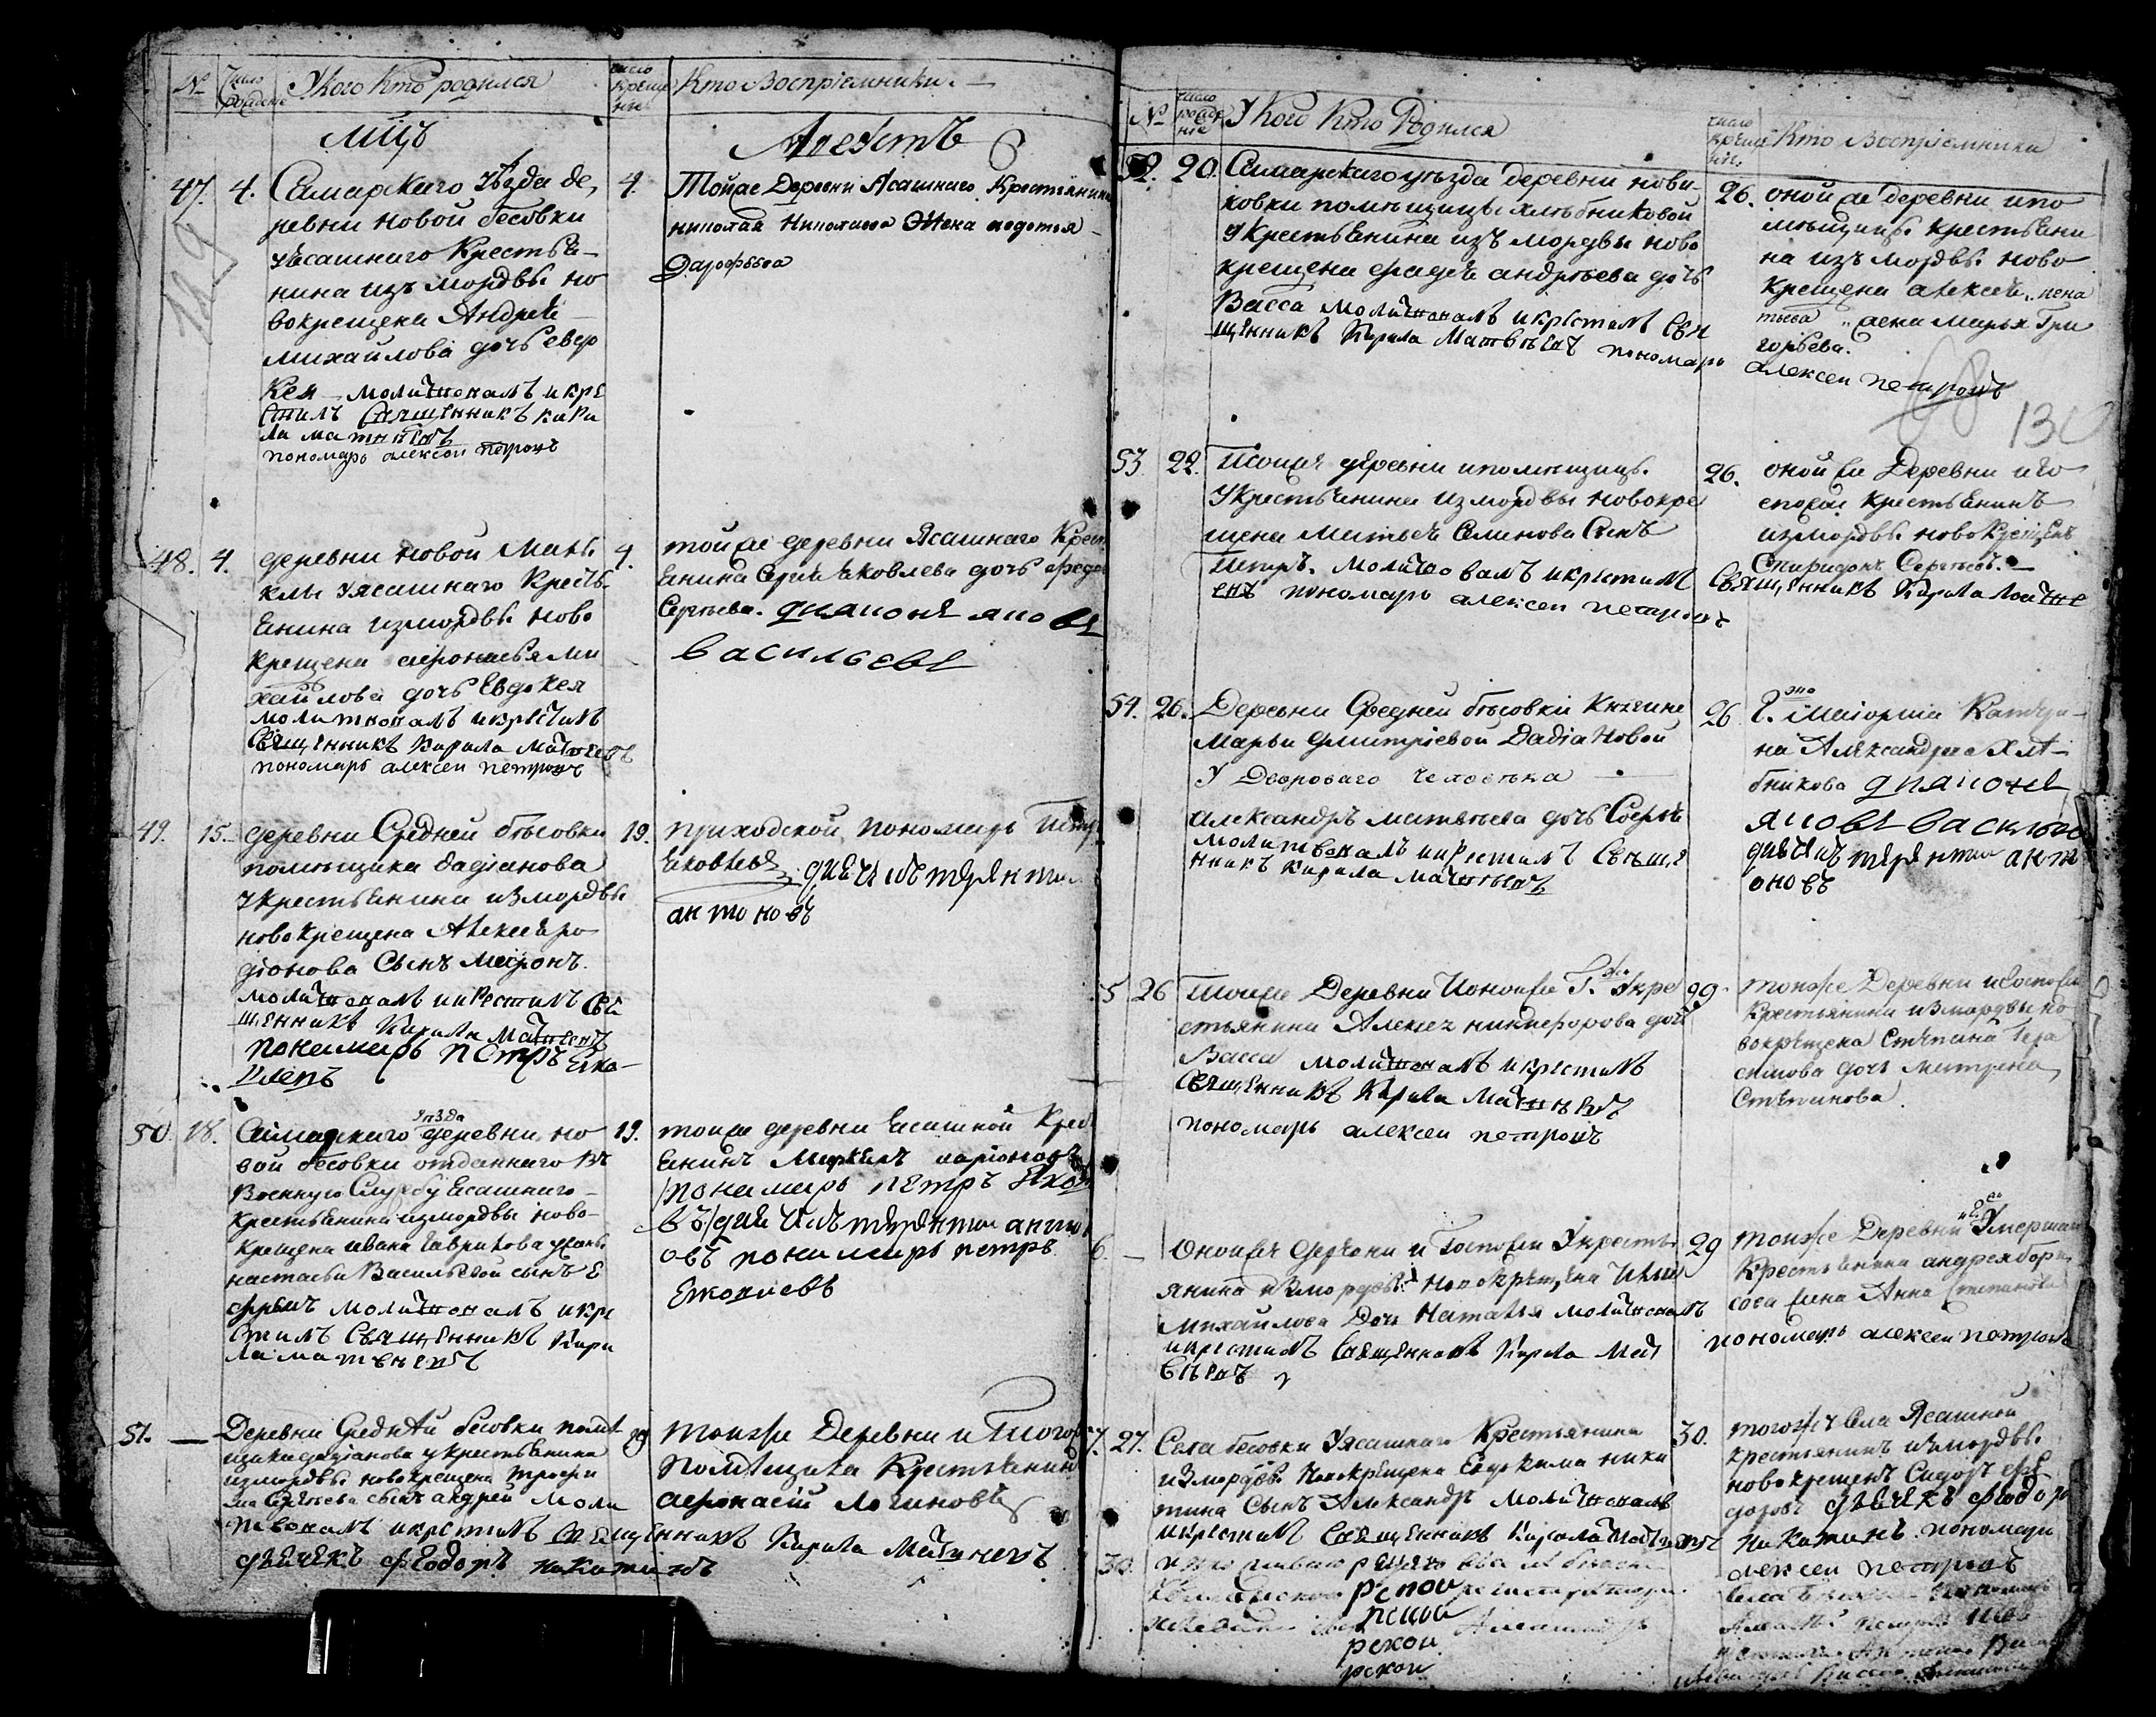 № Число рождение У кого кто родился число креще ния Кто восприемники.
мцъ Августъ
47. 4. Самарскаго уѣзда де,
ревни новой бесовки
уясашнаго крестья
нина изъ мордвы но
вокрещена Андрей
михайлова дочь евдо
кея молитвовалъ и кре
стилъ священникъ кири
ла матвеевъ
пономарь алексеи петровъ
4. Тойже Деревни Ясашнаго Крестьянина
николая Николаева Жена федотья
Дарофѣева
48. 4. деревни новой Маты
клы уясашнаго кресть
янина измордвы ново
крещена афонасья ми
хайлова дочь Евдокея
молитвовалъ и крестилъ
Священникъ Кирила Матвеевъ
пономарь алексеи петровъ
4. тойже деревни Ясашнаго Крест
янина Сергей Яковлева дочь федо
Сергѣева. дияконъ яковъ
васильевъ
49. 15. деревни Средней бѣсовки
помѣщика дадіанова
укрестьянина измордвы
новокрещена Алексея ро
діонова Сынъ Миронъ.
молитвовалъ и крестилъ свя
щенникъ Кирила Матвеевъ
понамарь петръ яко
влевъ
19. приходской пономарь Петръ
Яковлевъ дьячекъ терентеи
антоновъ
50. 18. Самарскаго уѣзда деревни но
вой бесовки отданнаго въ
Военную Службу Ясашнаго
крестьянина измордвы ново
крещена ивана Гаврилова ужены
настасьи Васильевой сынъ Е
фремъ молитвовалъ и кре
стилъ священникъ Кири
ла матвеевъ
19. тойже деревни Ясашной Крест
янинъ Маркелъ ларіоновъ
понамарь петръ Яко
въ дьячекъ терентеи антон
овъ понамарь петръ
Яковлевъ
51. — Деревни Средней бесовки помѣ
щика дадіанова у крестьянина
измордвы новокрещена трофи
ма Сергѣева сынъ андрей моли
твовалъ и крестилъ священникъ Кирила Матвеевъ
дьячекъ феодоръ никитинъ
тоиже Деревни и того
помѣщика Крестьянинъ
афонасій Логиновъ
№ число рожде ния У кого Кто Родился число креще ния Кто восприемники
52. 20. Самарскаго уѣзда деревни нови
ковки помѣщицы хлѣбниковой
укрестьянина изъ мордвы ново
крещена фадея андрѣева дочь
Васса молитвовалъ и крестилъ Свя
щенникъ Кирила Матвѣевъ пономарь
алексеи петровъ
26. оной же деревни и по
мѣщицы крестьяни
на изъ мордвы ново
крещена алексея игна
тьева жена марья Гри
горьева.
130
53. 22. Тоиже деревни и помѣщицы
укрестьянина измордвы новокре
щена Матвея Семинова Сынъ
Петръ. молитвовалъ и крестилъ
Священникъ Кирила Матве
евъ пономарь алексеи петровъ
26. оной же Деревни и го
спожи крестьянинъ
измордвы новокрещенъ
Спиридонъ Сергѣевъ.
54. 26. Деревни Средней бѣсовки Княгине
Марьи Дмитріевой Дадіановой
У Двороваго человѣка
александръ матвѣева дочь Софья
молитвовалъ и крестилъ Свяще
нникъ Кирила Матвѣевъ
26. Г.жа Маіорша Катери
на Александрова Хлѣ
бникова дияконъ
яковъ васильевъ
дьячекъ терентеи ант
оновъ
26 Тоиже Деревни И оноиже Г.жи Укре
стьянина Алексея никифорова дочь
Васса молитвовалъ и крестилъ
Священникъ Кирила Матвѣевъ
пономарь алексеи петровъ
29. тоиже Деревни и Госпожи
Крестьянина измордвы но
вокрещена Степана Гера
симова дочь матрена
Степанова
6. — Оноиже Деревни и Госпожи Укресть
янина измордвы новокрещена Ильи
михайлова Дочь Наталья молитвовалъ
и крестилъ священникъ Кирила Мат
вѣевъ
29 тоиже Деревни и Г.жи Умершаго
Крестьянина андрея бори
сова жена Анна Степанова
пономарь алексеи петровъ
7. 27. Села бесовки Уясашнаго Крестьянина
измордвы Новокрещена Евдокима ники
тина Сынъ Александръ молитвовалъ
и крестилъ священникъ Кирила Матвеевъ
30. тогоже Села Ясашной
крестьянинъ измордвы
новокрещенъ Сидоръ фе
доровъ дьячекъ феодоръ
никитинъ пономарь
алексеи петровъ
30.